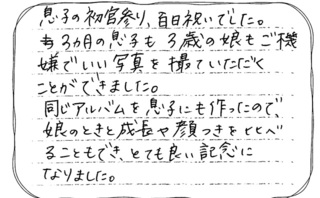 息子の初宮参り、百日祝いでした。
3ヵ月の息子も3歳の娘もご機
嫌でいい写真を撮っていただく
ことができました。
同じアルバムを息子にも作ったので、
娘のときと成長や顔つきをくらべ
ることもでき、とても良い記念に
なりました。